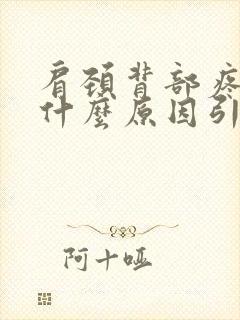 肩頚背部疼
什麼原因引
阿十哑